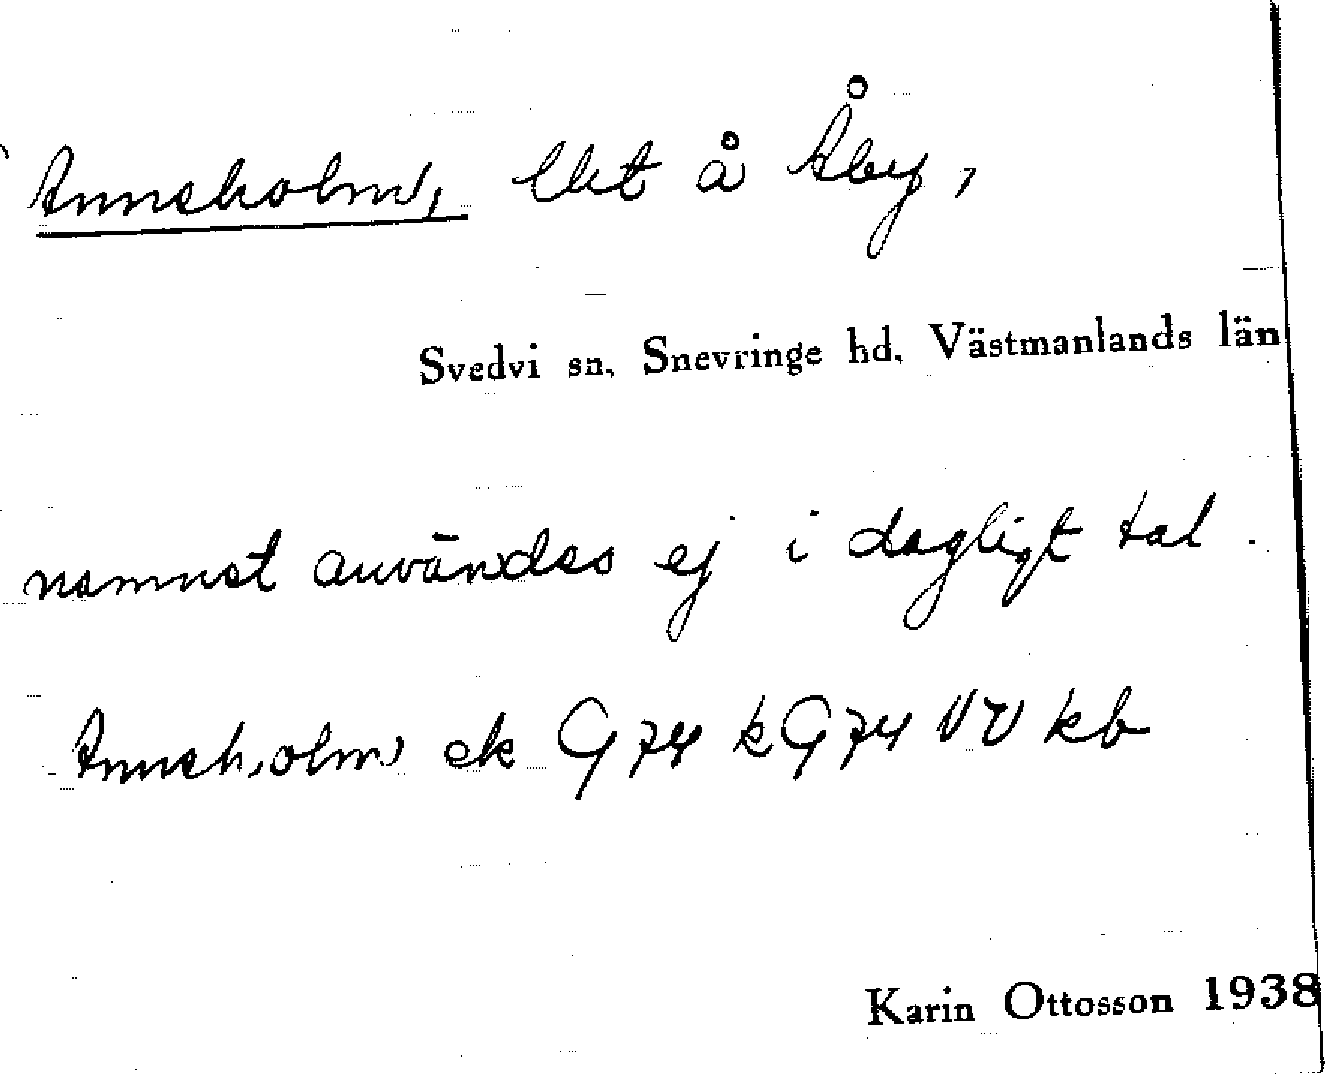 Anneholm, lht å Åby,
Svedvi sn, Snevringe hd, Västmanlands län
namnet användes ej i dagligt tal.
Anneholm ek G74 kG74 VV kb
Karin Ottosson 1938